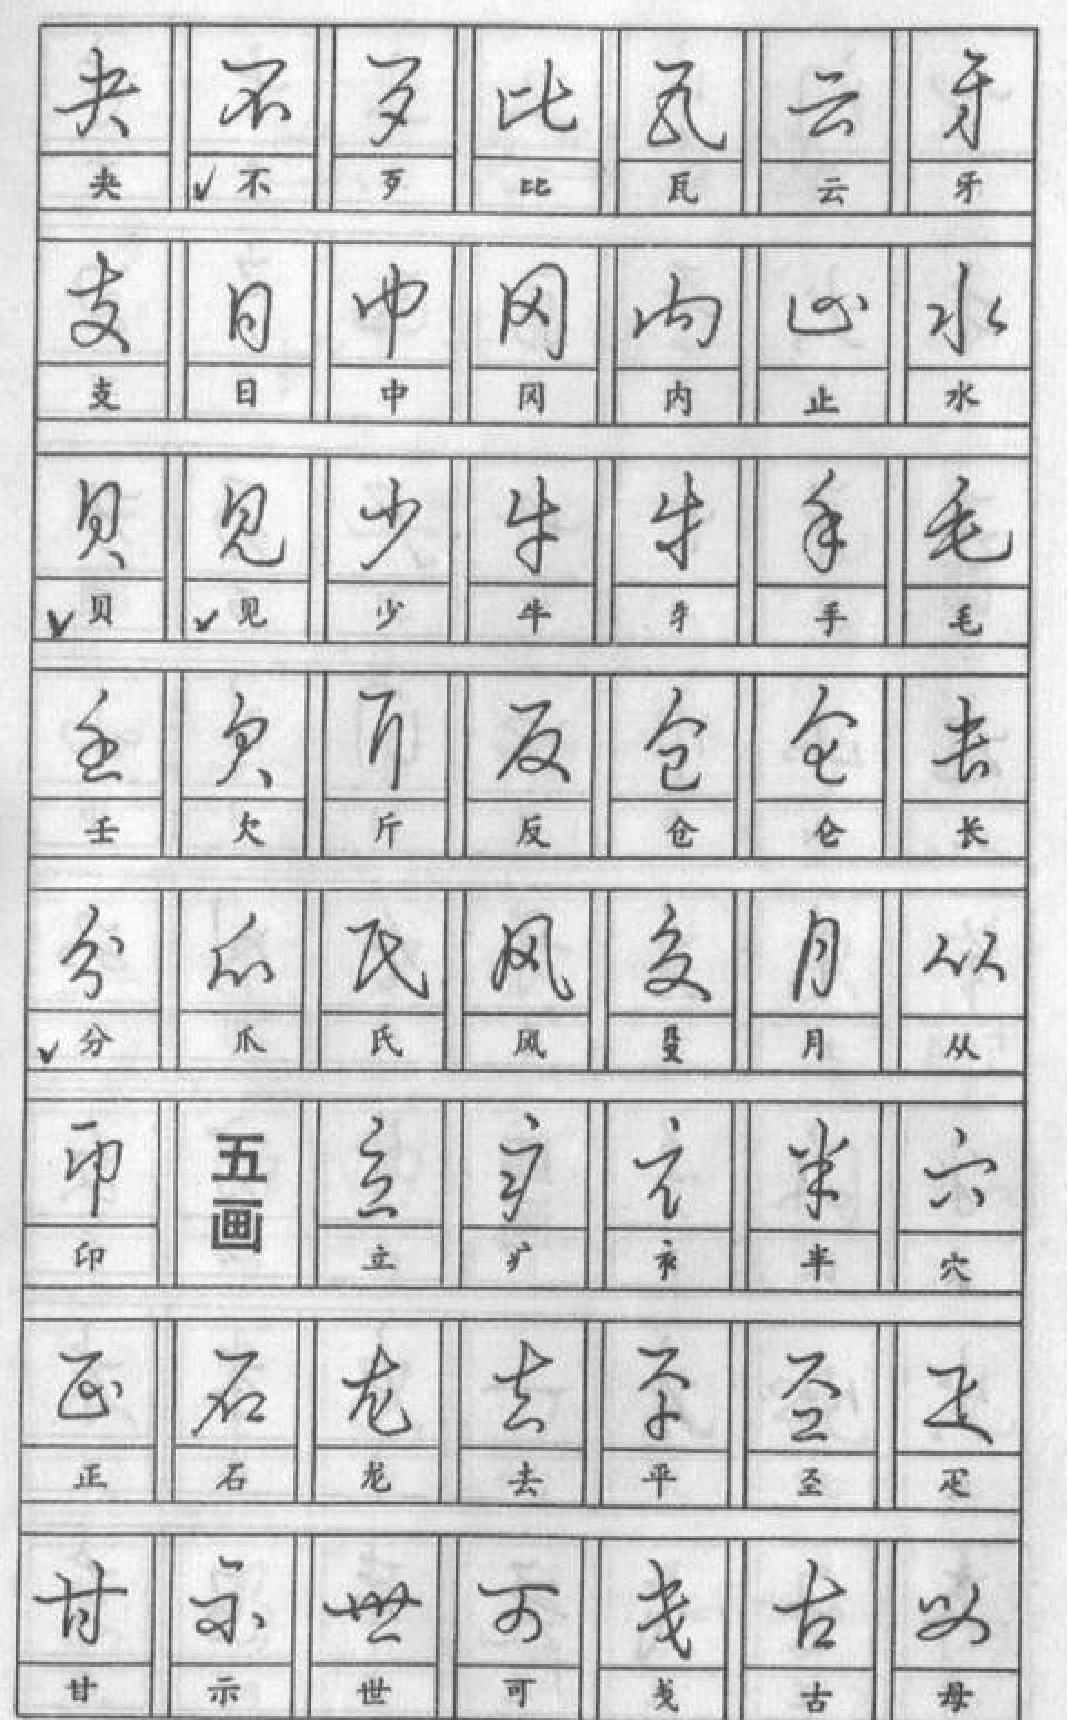 夬 不 歹 比 瓦 云 牙
夬 ✓不 歹 比 瓦 云 牙
支 日 中 冈 内 止 水
支 日 中 冈 内 止 水
贝 见 少 牛 牜 手 毛
✓贝 ✓见 少 牛 牜 手 毛
壬 欠 斤 反 仓 仑 长
壬 欠 斤 反 仓 仑 长
分 爪 氏 风 殳 月 从
✓分 爪 氏 风 殳 月 从
印 五画 立 疒 衤 半 穴
印 立 疒 衤 半 穴
正 石 龙 去 平 圣 疋
正 石 龙 去 平 圣 疋
甘 示 世 可 戋 古 母
甘 示 世 可 戋 古 母